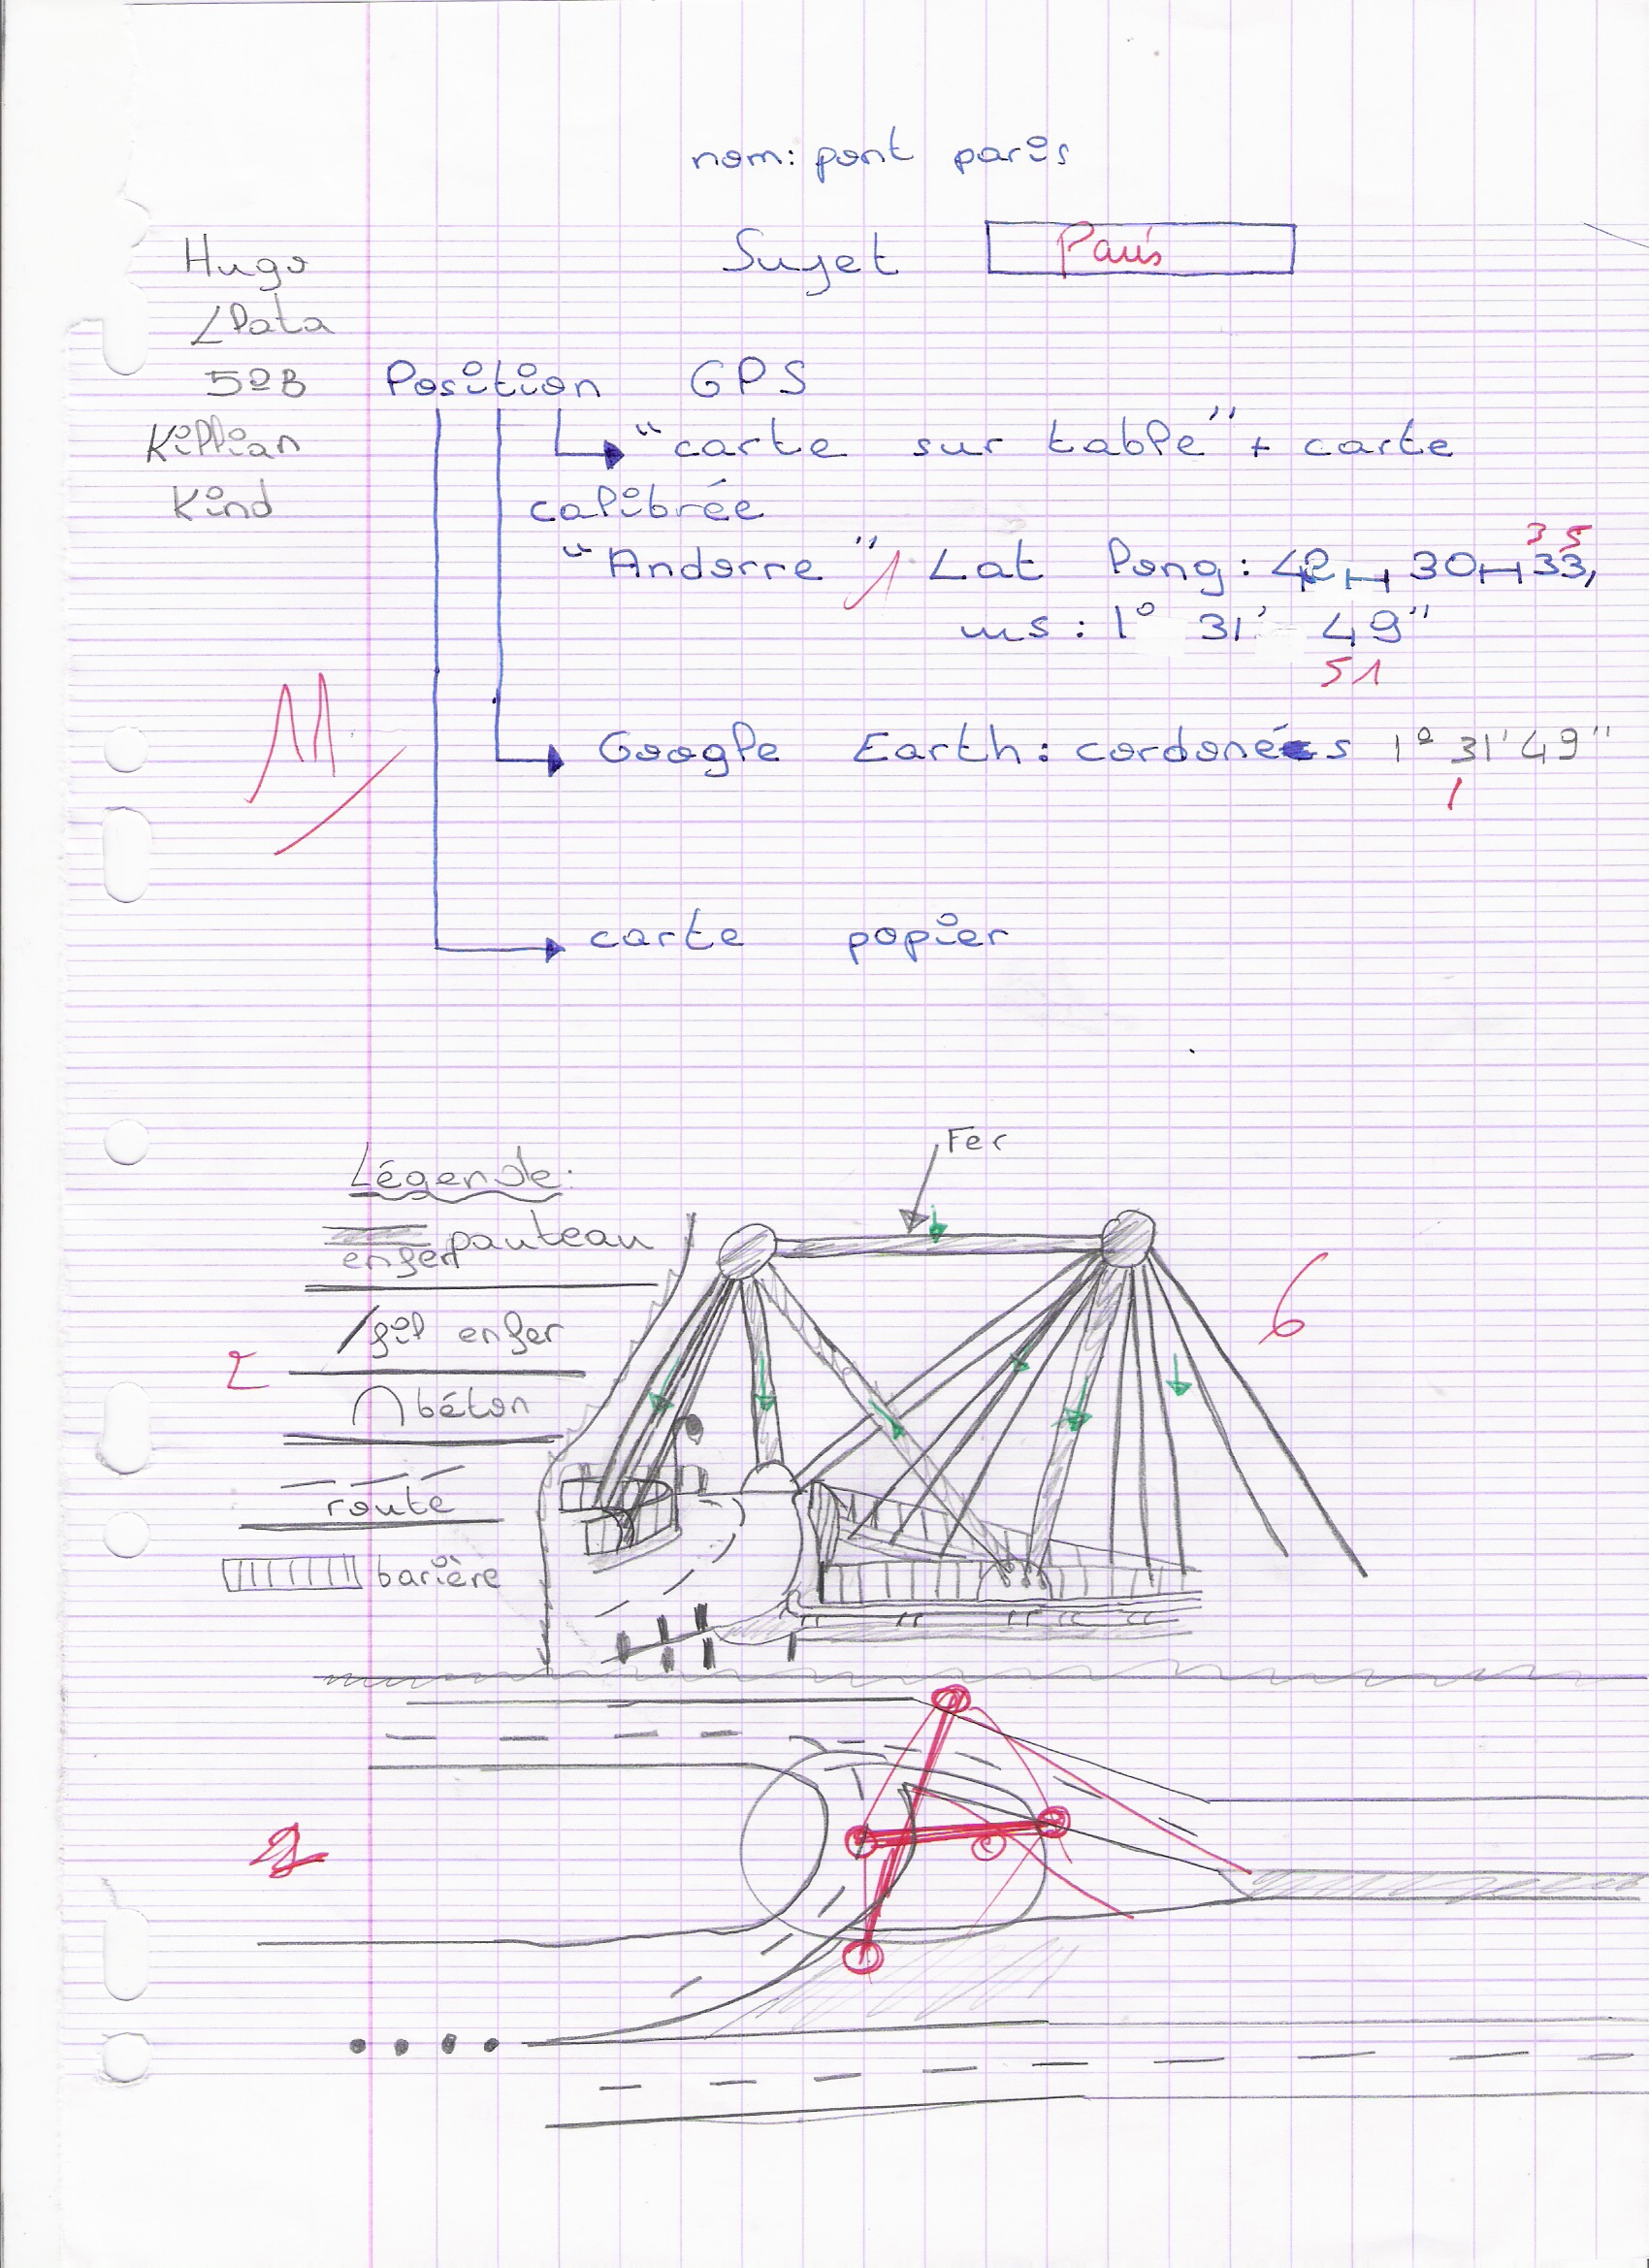 nom: pont paris
Sujet Paris
Hugo
Plata
5ºB
Killian
Kind
Position GPS
"carte sur table" + carte
calibrée
"Andorre" 1 Lat Long: 42 30 33,
3 5
ms: 1° 31' 49"
51
11
Google Earth: cordonées 1º 31' 49"
1
carte popier
Fer
Légende:
pauteau
enfer
fil enfer
6
2
béton
route
barière